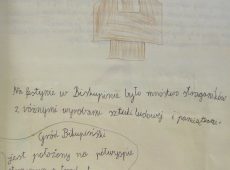 Na festynie w Biskupinie było mnóstwo straganików
z różnymi wyrobami sztuki ludowej i pamiątkami.
Gród Biskupiński
jest położony na półwyspie